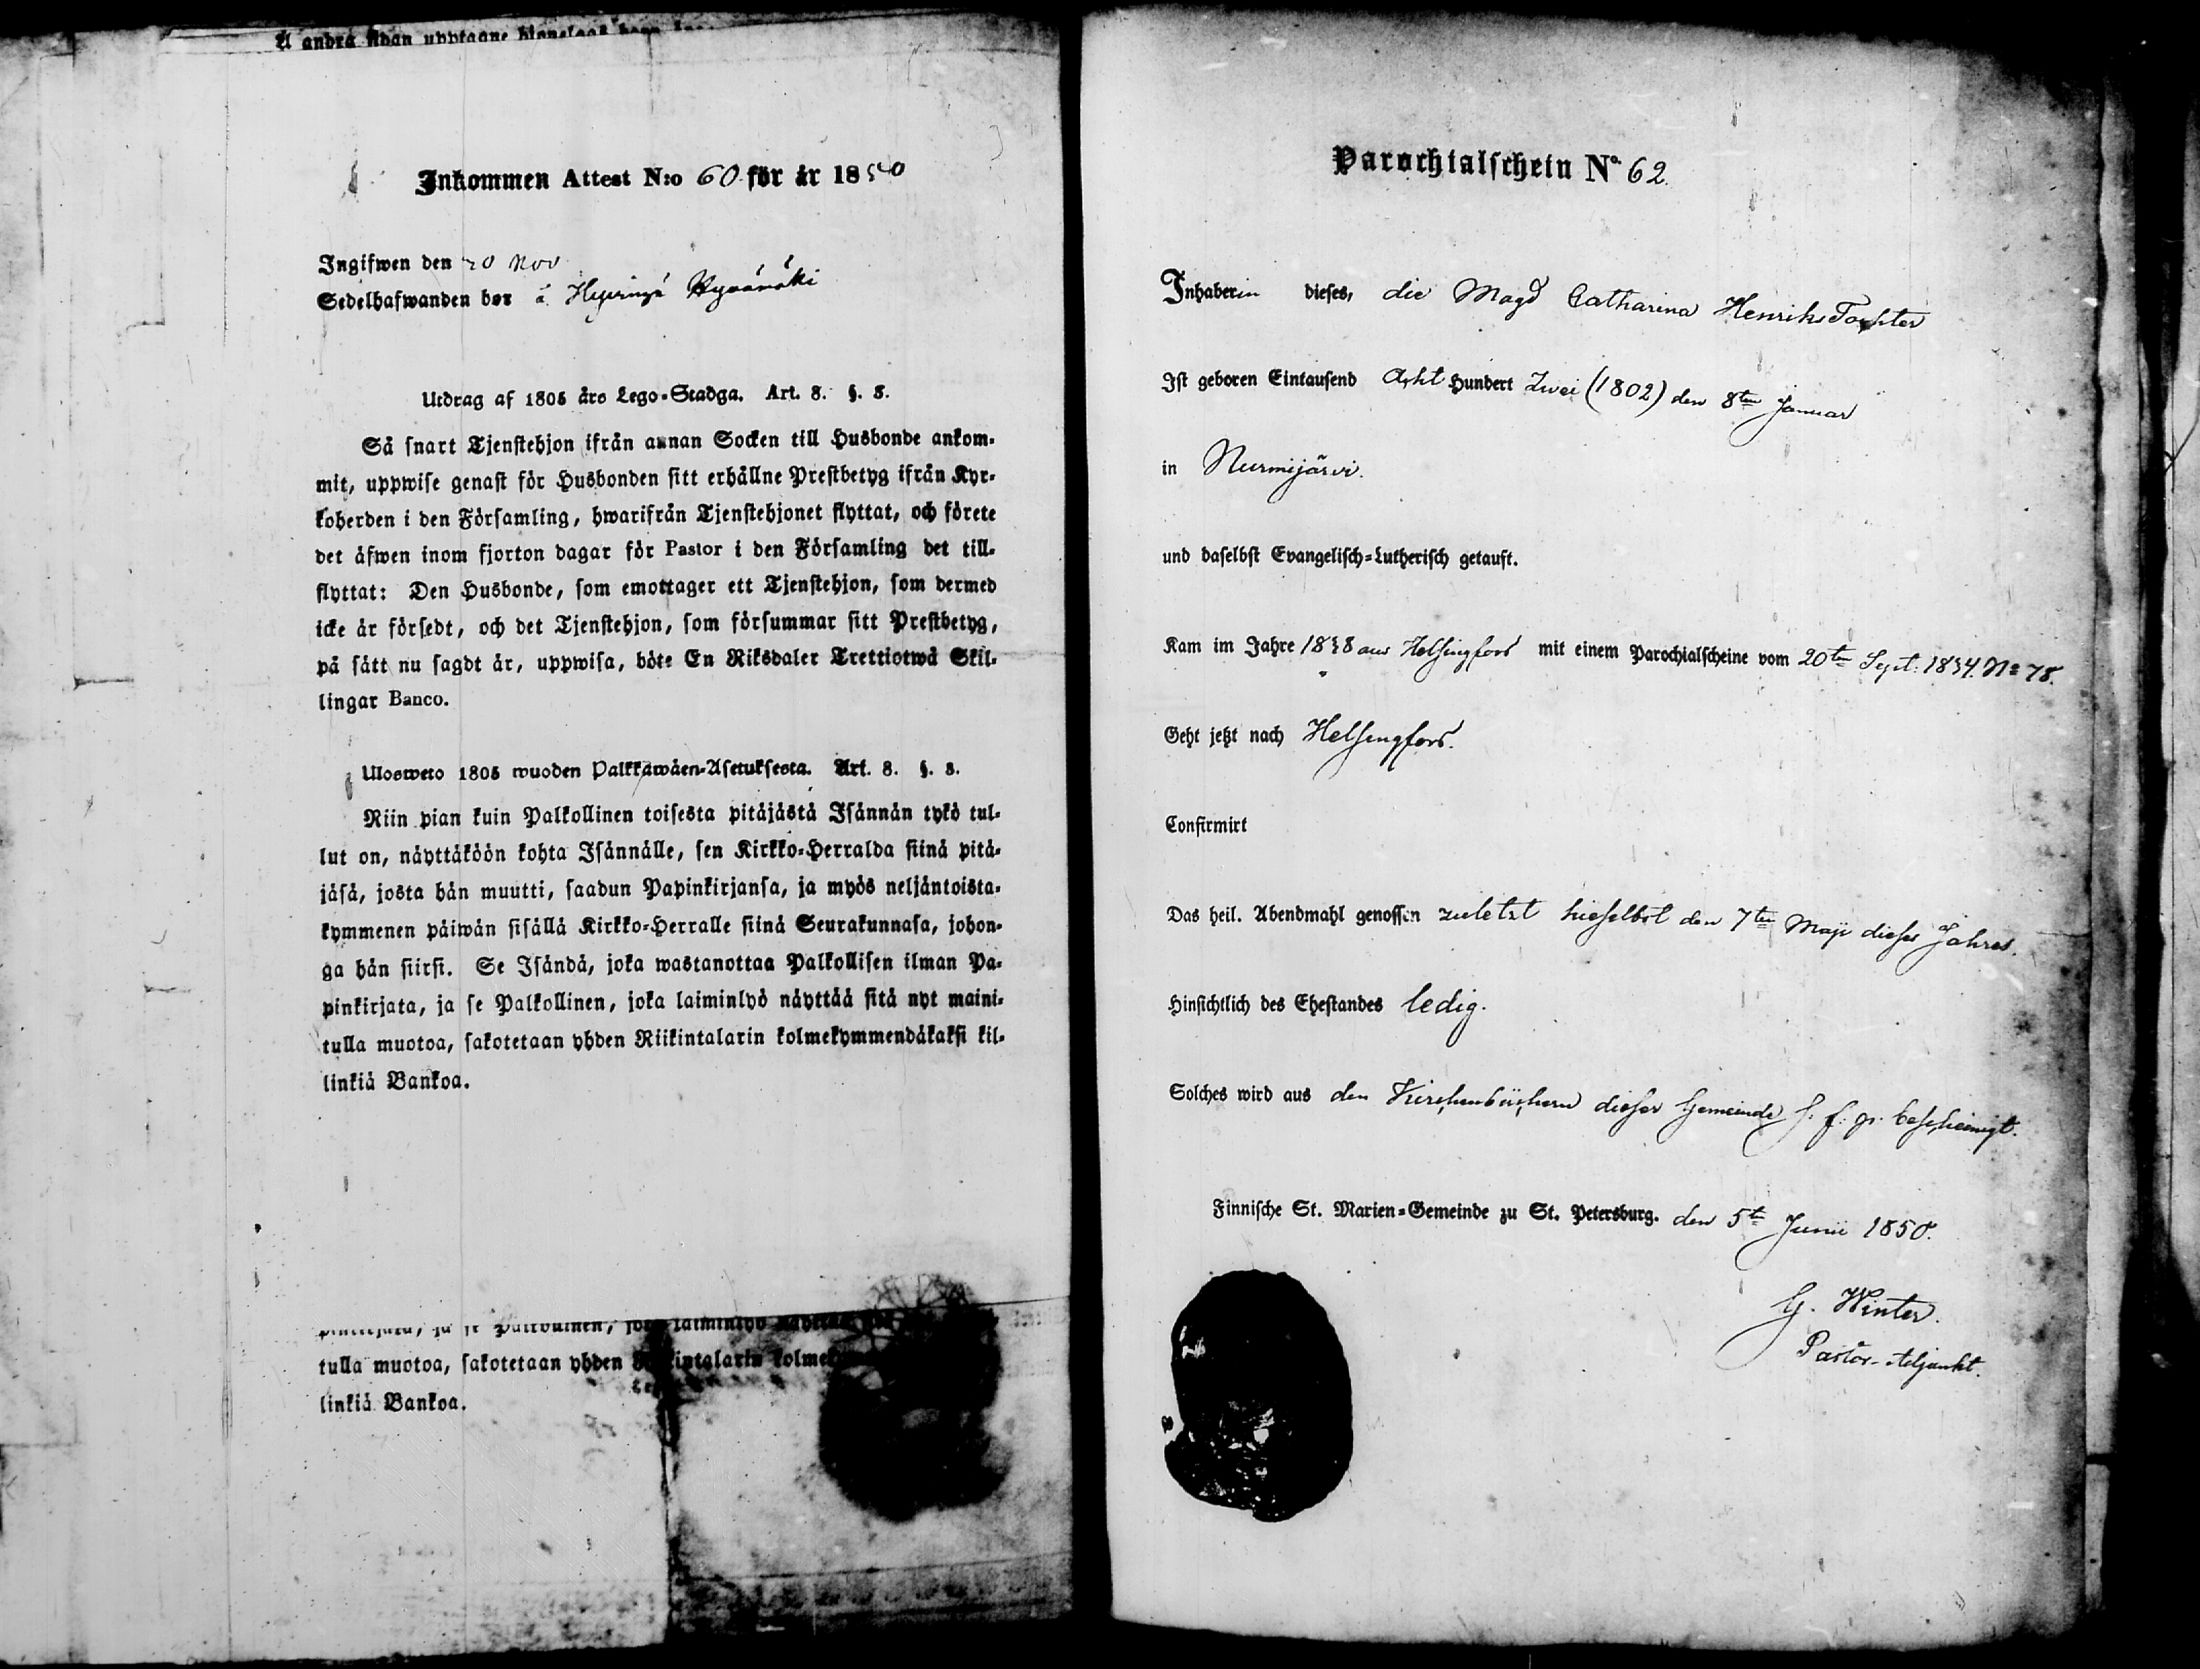 Inkommen Attest N:o 60 för år 1850
Ingifwen den 20 Nov
Sedelhafwanden bor å
Utdrag af 1805 års Lego-Stadga. Art. 8. §. 8.
Så snart Tjenstehjon ifrån annan Socken till Husbonde ankom-
mit, uppwise genast för Husbonden sitt erhållne Prestbetyg ifrån Kyr-
koherden i den Församling, hwarifrån Tjenstehjonet flyttat, och förete
det äfwen inom fjorton dagar för Pastor i den Församling det till-
flyttat: Den Husbonde, som emottager ett Tjenstehjon, som dermed
icke är försedt, och det Tjenstehjon, som försummar sitt Prestbetyg,
på sätt nu sagdt är, uppwisa, böte En Riksdaler Trettiotwå Skil-
lingar Banco.
Ulosweto 1805 wuoden Palkkawäen-Asetuksesta. Art. 8. §. 8.
Niin pian kuin Palkollinen toisesta pitäjästä Isännän tykö tul-
lut on, näyttäköön kohta Isännälle, sen Kirkko-Herralda siinä pitä-
jäsä, josta hän muutti, saadun Papinkirjansa, ja myös neljäntoista-
kymmenen päiwän sisällä Kirkko-Herralle siinä Seurakunnasa, johon-
ga hän siirsi. Se Isändä, joka wastanottaa Palkollisen ilman Pa-
pinkirjata, ja se Palkollinen, joka laiminlyö näyttää sitä nyt maini-
tulla muotoa, sakotetaan yhden Riikintalarin kolmekymmendäkaksi kil-
linkiä Bankoa.
tulla muotoa, sakotetaan yhden
linkiä Bankoa.
Parochialschein No 62.
Inhaberin dieses, die Magd Catharina Henriks Tochter
Ist geboren Eintausend Acht Hundert Zwei (1802) den 8ten Januar
in Nurmijärvi.
und daselbst Evangelisch-Lutherisch getauft.
Kam im Jahre 1838 aus Helsingfors mit einem Parochialscheine vom 20ten Sept. 1834. No 78.
Geht jetzt nach Helsingfors.
Confirmirt
Das heil. Abendmahl genossen zuletzt hieselbst den 7ten Maji dieses Jahres.
Hinsichtlich des Ehestandes ledig.
Solches wird aus den Kirchenbüchern dieser Gemeinde bescheinigt.
Finnische St. Marien-Gemeinde zu St. Petersburg. den 5t Junii 1850.
G. Winter.
Pastor-Adjunkt.